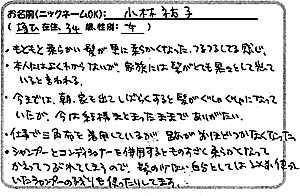 お名前(ニックネームOK): 小林祐子
(埼玉在住、34歳、性別:女)
・もともと柔らかい髪が更に柔らかくなった。つるつるしてる感じ。
・本人にはよくわからないが、家族には髪がとても黒々としている
と言われる。
・今までは、朝、家を出てしばらくすると髪がぐしゃぐしゃになって
いたが、今は結構まとまったままでありがたい。
・仕事で三角巾を着用しているが、跡がさほどつかなくなった
・シャンプーとコンディショナーを併用するとものすごく柔らかくなって
かえってつぶれてしまうので、髪の少ない自分としては以前使って
いたシャンプーの残りも使ったりしてます。